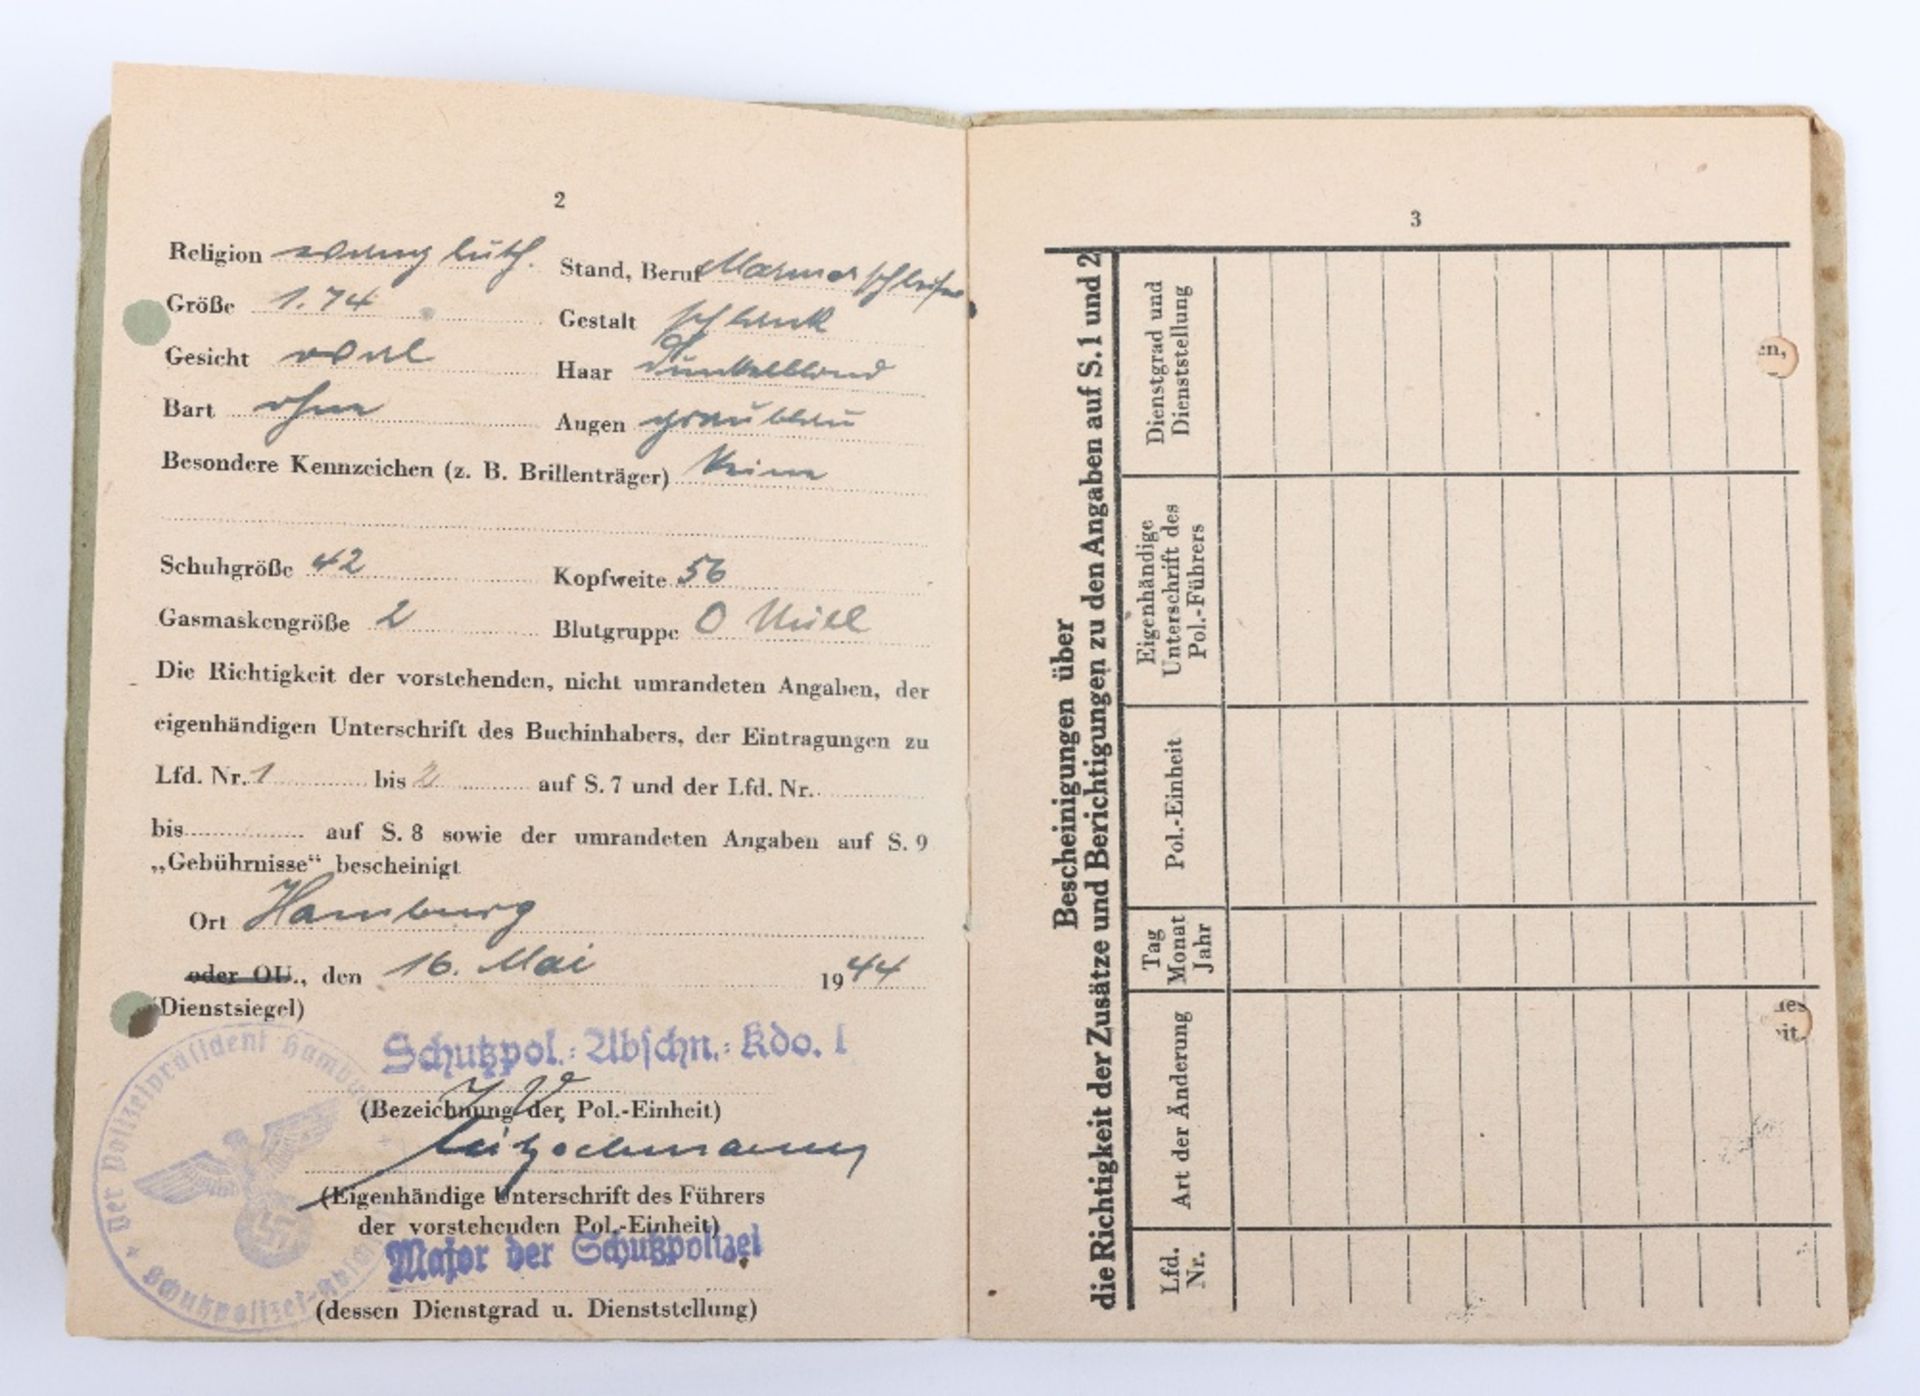 2
Religion evang luth. Stand, Beruf Marmorschleifer
Größe 1.74 Gestalt schlank
Gesicht oval Haar dunkelblond
Bart ohne Augen graublau
Besondere Kennzeichen (z. B. Brillenträger) Keine
Schuhgröße 42 Kopfweite 56
Gasmaskengröße 2 Blutgruppe 0
Die Richtigkeit der vorstehenden, nicht umrandeten Angaben, der
eigenhändigen Unterschrift des Buchinhabers, der Eintragungen zu
Lfd. Nr. 1 bis 2 auf S. 7 und der Lfd. Nr.
bis auf S. 8 sowie der umrandeten Angaben auf S. 9
„Gebührnisse“ bescheinigt
Ort Hamburg
oder OU., den 16. Mai 1944
(Dienstsiegel)
Der Polizeipräsident Hamburg
Schutzpolizei-
Schutzpol.-Abschn.-Kdo. I
I V
(Bezeichnung der Pol.-Einheit)
(Eigenhändige Unterschrift des Führers
der vorstehenden Pol.-Einheit)
Major der Schutzpolizei
(dessen Dienstgrad u. Dienststellung)
3
Bescheinigungen über
die Richtigkeit der Zusätze und Berichtigungen zu den Angaben auf S. 1 und 2
Lfd.
Nr.
Art der Änderung
Tag
Monat
Jahr
Pol.-Einheit
Eigenhändige
Unterschrift des
Pol.-Führers
Dienstgrad und
Dienststellung
en,
des
it.